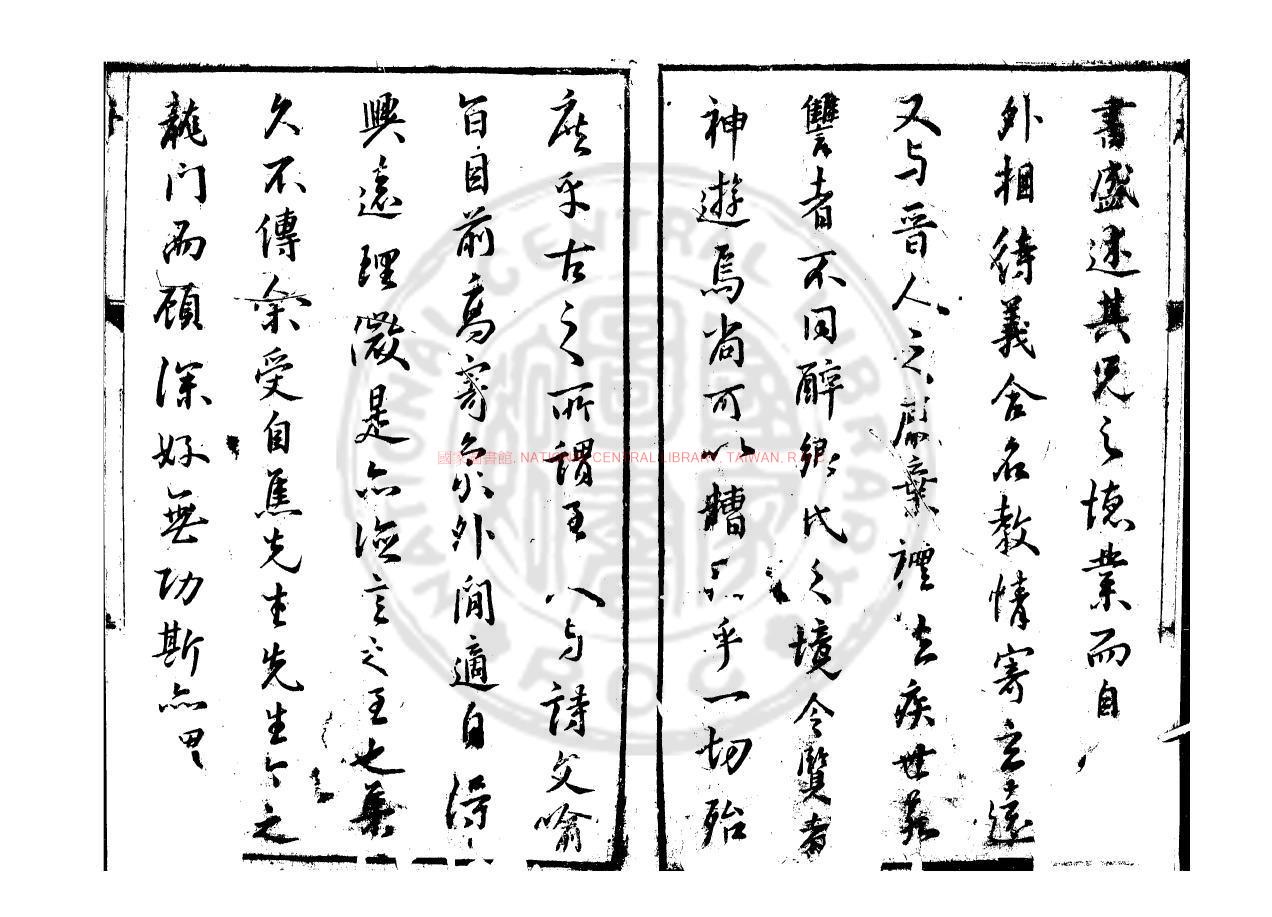 書盛述其兄之德業而自
外相待義含名教情寄玄遠
又与晉人之屏棄禮法疾世若
讐者不同醉鄉代之境令覽者
神遊焉尚可以糟粕乎一切殆
庶乎古之所謂至人与詩文喻
旨目前高寄象外閒適自得
興遠理微是亦德言之至也集
久不傳余受自焦先生先生今之
龍门而顧深好無功斯亦异
國家圖書館, NATIONAL CENTRAL LIBRARY, TAIWAN, R.O.C
NATIONAL CENTRAL LIBRARY
ROC